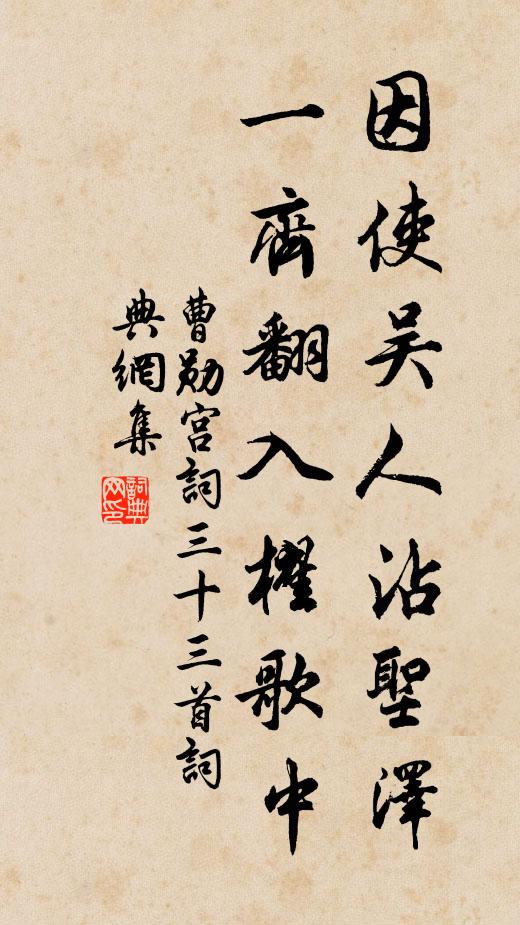 因使吴人沾聖澤
一齊翻入櫂歌中
曹勛宫詞三十三首詞
典網集
詞典
网印